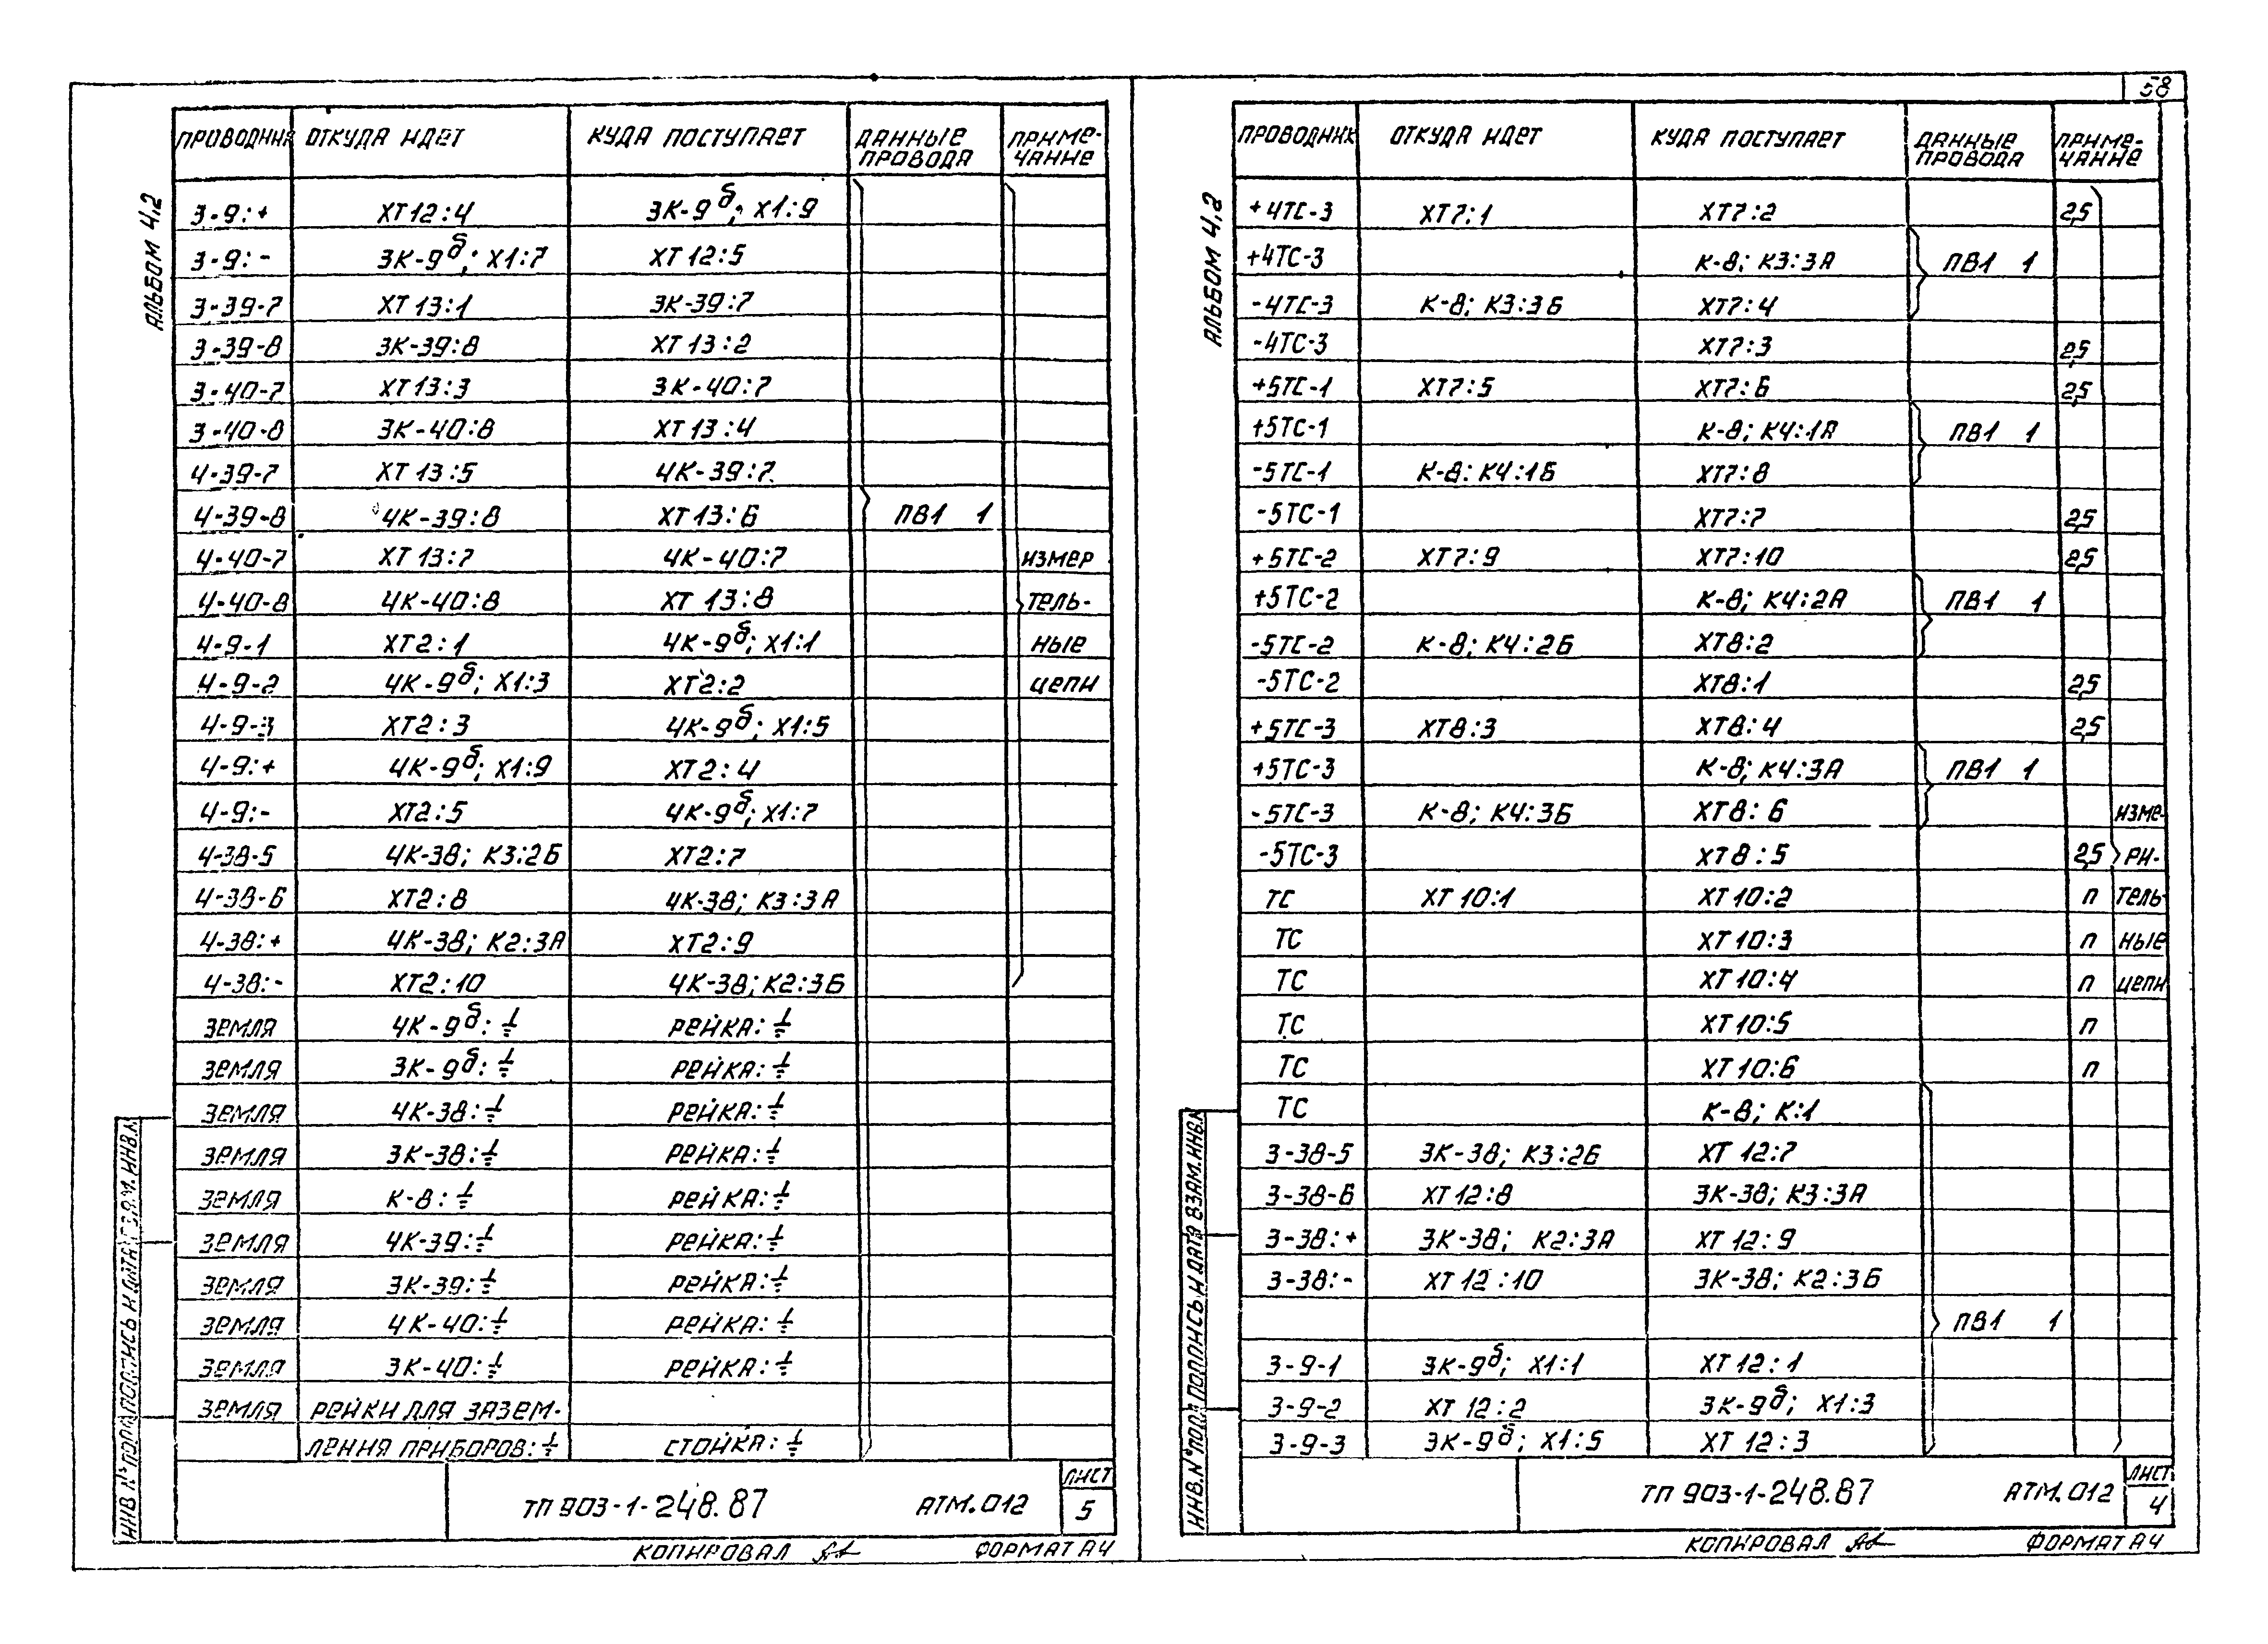 58
АЛЬБОМ 4.2
ПРОВОДНИК ОТКУДА ИДЕТ КУДА ПОСТУПАЕТ ДАННЫЕ ПРОВОДА ПРИМЕ-ЧАНИЕ
3-9:+ ХТ12:4 3К-9б; Х1:9
3-9:- 3К-9б; Х1:7 ХТ12:5
3-39-7 ХТ13:1 3К-39:7
3-39-8 3К-39:8 ХТ13:2
3-40-7 ХТ13:3 3К-40:7
3-40-8 3К-40:8 ХТ13:4
4-39-7 ХТ13:5 4К-39:7
4-39-8 4К-39:8 ХТ13:6 ПВ1 1
4-40-7 ХТ13:7 4К-40:7 ИЗМЕР
4-40-8 4К-40:8 ХТ13:8 ТЕЛЬ-
4-9-1 ХТ2:1 4К-9б; Х1:1 НЫЕ
4-9-2 4К-9б; Х1:3 ХТ2:2 ЦЕПИ
4-9-3 ХТ2:3 4К-9б; Х1:5
4-9:+ 4К-9б; Х1:9 ХТ2:4
4-9:- ХТ2:5 4К-9б; Х1:7
4-38-5 4К-38; К3:2Б ХТ2:7
4-38-6 ХТ2:8 4К-38; К3:3А
4-38:+ 4К-38; К2:3А ХТ2:9
4-38:- ХТ2:10 4К-38; К2:3Б
ЗЕМЛЯ 4К-9б:⏚ РЕЙКА:⏚
ЗЕМЛЯ 3К-9б:⏚ РЕЙКА:⏚
ЗЕМЛЯ 4К-38:⏚ РЕЙКА:⏚
ЗЕМЛЯ 3К-38:⏚ РЕЙКА:⏚
ЗЕМЛЯ К-8:⏚ РЕЙКА:⏚
ЗЕМЛЯ 4К-39:⏚ РЕЙКА:⏚
ЗЕМЛЯ 3К-39:⏚ РЕЙКА:⏚
ЗЕМЛЯ 4К-40:⏚ РЕЙКА:⏚
ЗЕМЛЯ 3К-40:⏚ РЕЙКА:⏚
ЗЕМЛЯ РЕЙКИ ДЛЯ ЗАЗЕМ-
ЛЕНИЯ ПРИБОРОВ:⏚ СТОЙКА:⏚
ИНВ.№ ПОДЛ ПОДПИСЬ И ДАТА ВЗАМ.ИНВ.№
ТП 903-1-248.87 АТМ.012 ЛИСТ 5
КОПИРОВАЛ ФОРМАТ А4
АЛЬБОМ 4.2
ПРОВОДНИК ОТКУДА ИДЕТ КУДА ПОСТУПАЕТ ДАННЫЕ ПРОВОДА ПРИМЕ-ЧАНИЕ
+4ТС-3 ХТ7:1 ХТ7:2 2,5
+4ТС-3 К-8; К3:3А ПВ1 1
-4ТС-3 К-8; К3:3Б ХТ7:4
-4ТС-3 ХТ7:3 2,5
+5ТС-1 ХТ7:5 ХТ7:6 2,5
+5ТС-1 К-8; К4:1А ПВ1 1
-5ТС-1 К-8; К4:1Б ХТ7:8
-5ТС-1 ХТ7:7 2,5
+5ТС-2 ХТ7:9 ХТ7:10 2,5
+5ТС-2 К-8; К4:2А ПВ1 1
-5ТС-2 К-8; К4:2Б ХТ8:2
-5ТС-2 ХТ8:1 2,5
+5ТС-3 ХТ8:3 ХТ8:4 2,5
+5ТС-3 К-8; К4:3А ПВ1 1
-5ТС-3 К-8; К4:3Б ХТ8:6 ИЗМЕ-
-5ТС-3 ХТ8:5 2,5 РИ-
ТС ХТ10:1 ХТ10:2 П ТЕЛЬ-
ТС ХТ10:3 П НЫЕ
ТС ХТ10:4 П ЦЕПИ
ТС ХТ10:5 П
ТС ХТ10:6 П
ТС К-8; К:1
3-38-5 3К-38; К3:2Б ХТ12:7
3-38-6 ХТ12:8 3К-38; К3:3А
3-38:+ 3К-38; К2:3А ХТ12:9
3-38:- ХТ12:10 3К-38; К2:3Б
ПВ1 1
3-9-1 3К-9б; Х1:1 ХТ12:1
3-9-2 ХТ12:2 3К-9б; Х1:3
3-9-3 3К-9б; Х1:5 ХТ12:3
ИНВ.№ ПОДЛ ПОДПИСЬ И ДАТА ВЗАМ.ИНВ.№
ТП 903-1-248.87 АТМ.012 ЛИСТ 4
КОПИРОВАЛ ФОРМАТ А4